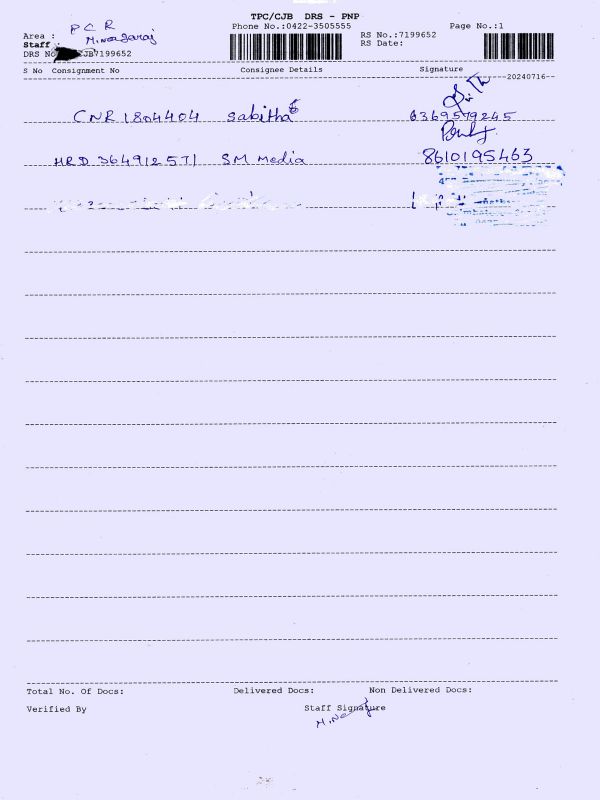 TPC/CJB DRS - PNP
Phone No.:0422-3505555
Page No.:1
Area : P C R
RS No.:7199652
Staff : M.Nagaraj
RS Date:
DRS No CJB7199652
S No Consignment No Consignee Details Signature
20240716
CNR1804404 Sabitha 6369579245
HRD364912571 SM Media 8610195463
Total No. Of Docs: Delivered Docs: Non Delivered Docs:
Verified By Staff Signature